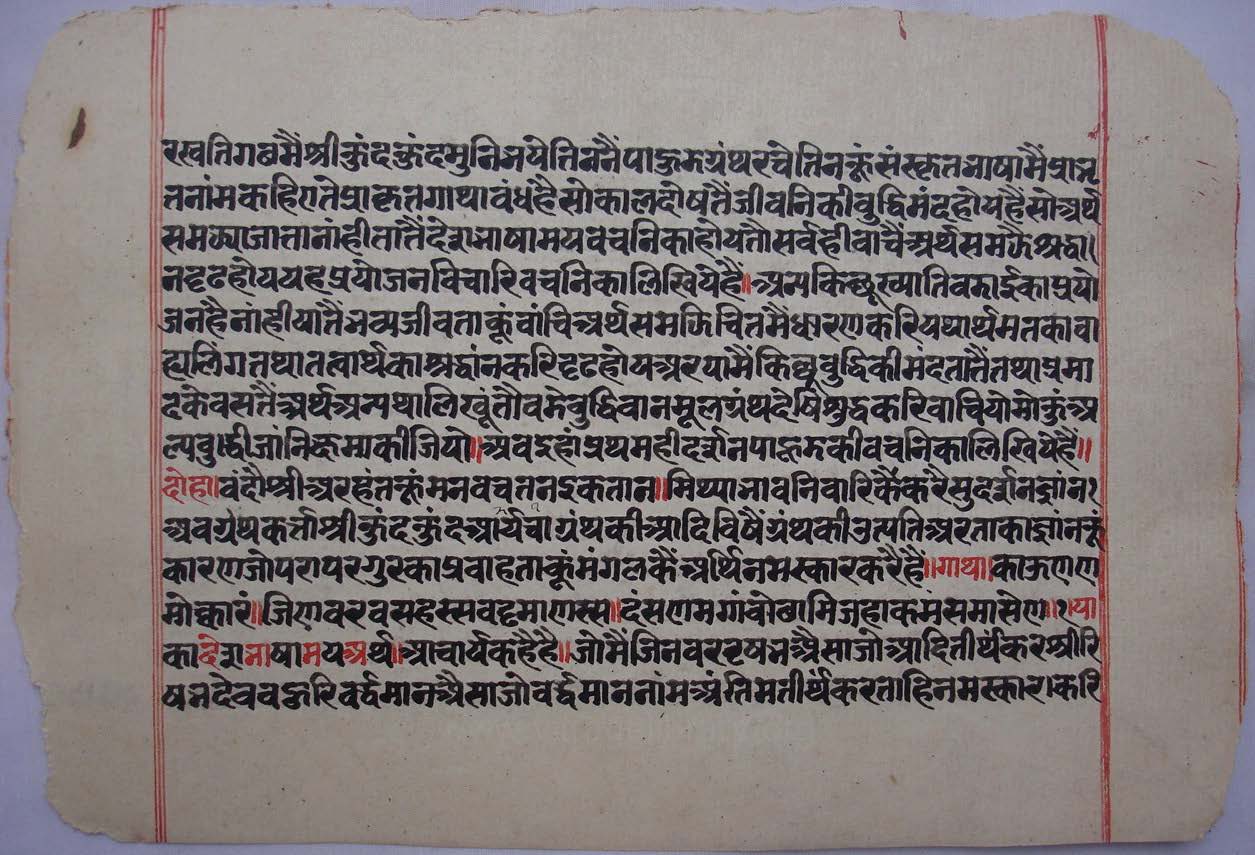 रस्वतिगछमैं श्री कुंदकुंदमुनि भये तिननैं पाहुड ग्रंथ रचे तिनकूं संस्कृत भाषा मैं प्राभृ
तनांम कहिए ते प्राकृत गाथा बंध है सो काल दोषतैं जीवनिकी बुद्धि मंद होय है सो अर्थ
समझ्या जाता नांही तातैं देश भाषामय वचनिका होय तौ सर्वही वाचैं अर्थ समझै श्रद्धा।
न दृढ होय यह प्रयोजन विचारि वचनिका लिखिये है॥ अन्य किछू ख्याति बडाई का प्रयो
जन है नांही यातैं भव्य जीव ताकूं वांचि अर्थ समझि चित मैं धारण करि यथार्थ मत का वा
ह्य लिंग तथा तत्वार्थ का श्रद्धांन करि दृढ होय अर यामैं किछू बुद्धि की मंदतातैं तथा प्रमा
द के वसतैं अर्थ अन्यथा लिखूं तौ बडे बुद्धिवान मूल ग्रंथ देषि शुद्ध करि वाचियो मोकुं अ
ल्प बुद्धी जांनि क्षमा कीजियो॥ अब इहां प्रथमही दर्शन पाहुड की वचनिका लिखिये है॥
दोहा। वंदौ श्री अरहंत कूं मन वच तन इकतान॥ मिथ्या भाव निवारिकैं करै सु दर्शन ज्ञांन१
अब ग्रंथ कर्त्ता श्री कुंदकुंद आर्यचा ग्रंथ की आदि विषैं ग्रंथ की उत्पति अर ताका ज्ञांन कूं
कारण जो परापर गुर का प्रवाह ताकूं मंगल कैं अर्थि नमस्कार करै है॥ गाथा। काऊण ण
मोक्कारं॥ जिणवर वसहस्स वट्टमाणस्स॥ दंसण मगां वोछामि जहाकमं समासेण॥१॥ या
का देश भाषामय अर्थ॥ आचार्य कहै है॥ जो मैं जिनवर वृषभ अैसा जो आदि तीर्थंकर श्री रि
षभदेव बहुरि वर्द्धमान अैसा जो वर्द्धमान नांम अंतिम तीर्थंकर ताहि नमस्कार। करि